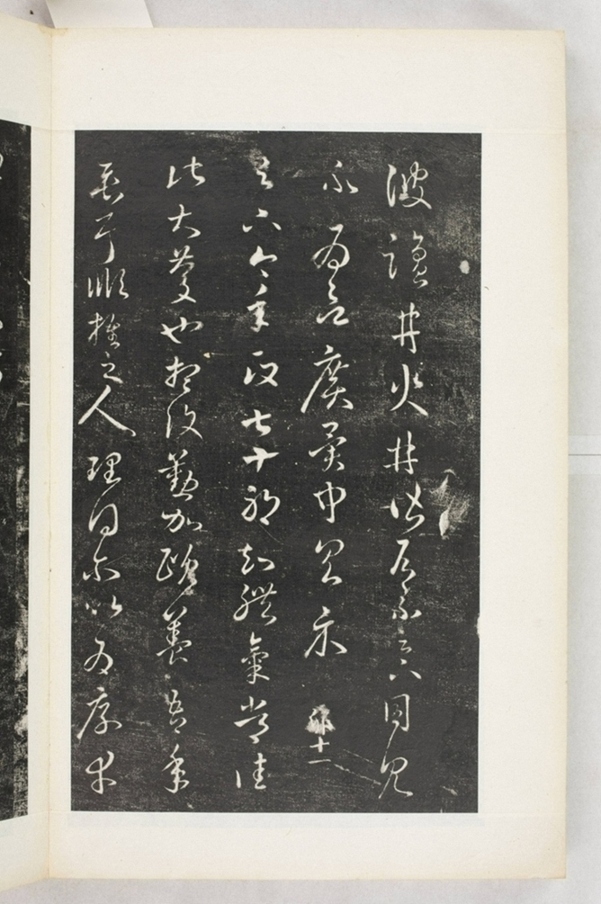 彼鹽井火井皆有不足下目見
不為欲廣異聞具示 十一
足下今年政七十耶知體氣常佳
此大慶也想復勤加頤養吾年
垂耳順推之人理得爾以為厚幸